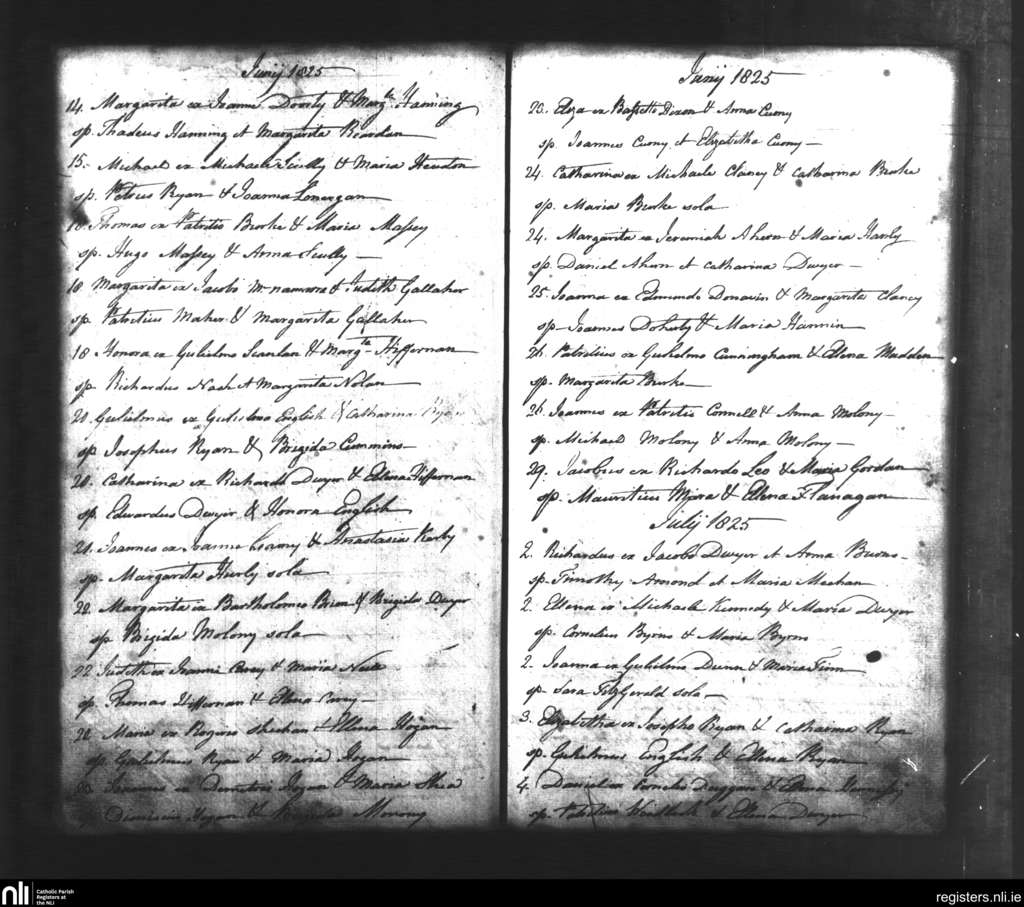 Junij 1825
14. Margarita ex Joanne Dowly & Marg.ta Hanning
sp. Thadeus Hanning et Margarita Reardan
15. Michael ex Michaele Scully & Maria Heuston
sp. Petrus Ryan & Joanna Lonergan
Thomas ex Patritio Burke & Maria Massey
sp. Hugo Massey & Anna Scully
18 Margarita ex Jacobo Mcnamara & Judith Gallaher
sp. Patritius Maher & Margarita Gallaher
18 Honora ex Gulielmo Scanlan & Marg.ta Hiffernan
sp. Richardus Nash et Margarita Nolan
21. Gulielmus ex Gulielmo English & Catharina
sp Josephus Ryan & Brigida Cummins
Catharina ex Richardo Dwyer & Ellena Hiffernan
sp. Edwardus Dwyer & Honora English
21. Joannes ex Joanne & Anastasia Kerby
sp. Margarita Hurly sola
22. Margarita ex Bartholomeo Brien & Brigida Dwyer
sp. Brigida Molony sola
22 Judith ex Joanne Carey & Maria
sp. Thomas Hiffernan & Ellena Carey
Maria ex Rogero Sheehan & Ellena Hogan
sp. Gulielmus Ryan & Maria Hogan
Joannes ex Demetrio Hogan & Maria Shea
Dionisius Hogan & Brigida
Junij 1825
23. Eliza ex Dixon & Anna Cuony
sp. Joannes Cuony et Elizabetha Cuony
24. Catharina ex Michaele Clancy & Catharina Burke
sp. Maria Burke sola
24. Margarita ex Jeremiah Ahern & Maria Hanly
sp. Daniel Ahern et Catharina Dwyer
25. Joanna ex Edmundo Donavin & Margarita Clancy
sp Joannes Doherty & Maria Hannin
26. Patritius ex Gulielmo Cunningham & Ellena Madden
sp. Margarita Burke
26. Joannes ex Patritio Connell & Anna Molony
sp. Michael Molony & Anna Molony
29. Jacobus ex Richardo Leo & Maria Gordan
sp. Mauritius & Ellena Flanagan
Julij 1825
2. Richardus ex Jacobo Dwyer et Anna Burns
sp. Timothy Armond et Maria Meehan
2. Ellena ex Michaele Kennedy & Maria Dwyer
sp. Cornelius Byrns & Maria Byrns
2. Joanna ex Gulielmo Dunn & Maria Finn
sp Sara FitzGerald sola
3. Elizabetha ex Josepho Ryan & Catharina Ryan
sp. Gulielmus English & Ellena Ryan
4. Daniel ex Cornelio Duggan & Ellena Hennessy
sp. & Ellena Dwyer
nli
Catholic Parish
Registers at
the NLI
registers.nli.ie